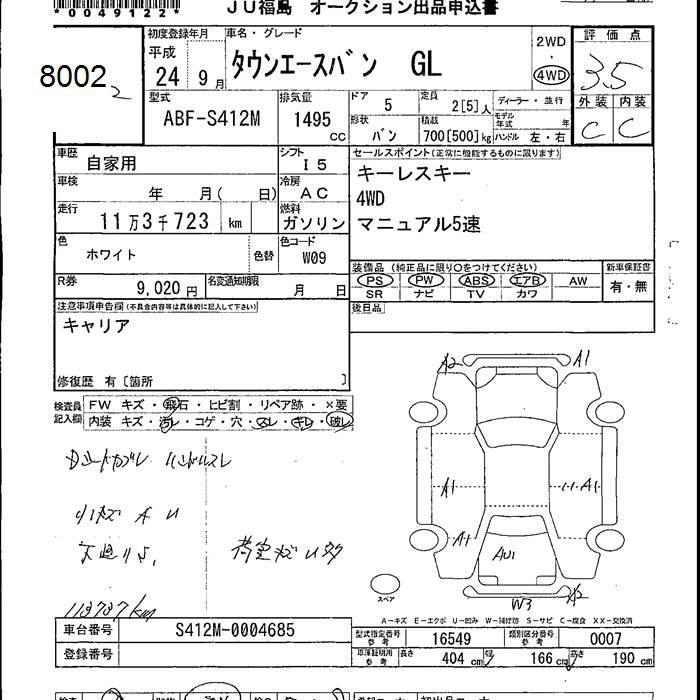 *0049122*
JU福島 オークション出品申込書
8002
2
初度登録年月
平成
24 9月
車名・グレード
タウンエースバン GL
2WD
4WD
評価点
3.5
外装 内装
C C
型式
ABF-S412M
排気量
1495 cc
ドア 5
定員 2[5]人
ディーラー・並行
形状 バン
積載 700[500]kg
モデル年式 年
ハンドル 左・右
車歴 自家用
シフト I5
車検 年 月( 日)
冷房 AC
走行 11万3千723 km
燃料 ガソリン
色 ホワイト 色替
色コード W09
R券 9,020円
名変通知期限 月 日
セールスポイント(正常に機能するものに限ります)
キーレスキー
4WD
マニュアル5速
装備品 (純正品に限り○をつけてください)
PS PW ABS エアB AW
SR ナビ TV カワ
新車保証書
有・無
後日品
注意事項申告欄(不具合内容等は具体的に記入して下さい)
キャリア
修復歴 有〔箇所 〕
検査員記入欄
FW キズ・飛石・ヒビ割・リペア跡・×要
内装 キズ・汚レ・コゲ・穴・スレ・キレ・破レ
ハンドルスレ
荷室キズ
113737km
A2 A1
A1 A1
A1
AU1
W3 A2
スペア
A-キズ E-エクボ U-凹み W-補修跡 S-サビ C-腐食 XX-交換済
車台番号 S412M-0004685
登録番号
型式指定番号 参考 16549
類別区分番号 参考 0007
車庫証明用 参考 長さ 404cm 幅 166cm 高さ 190cm